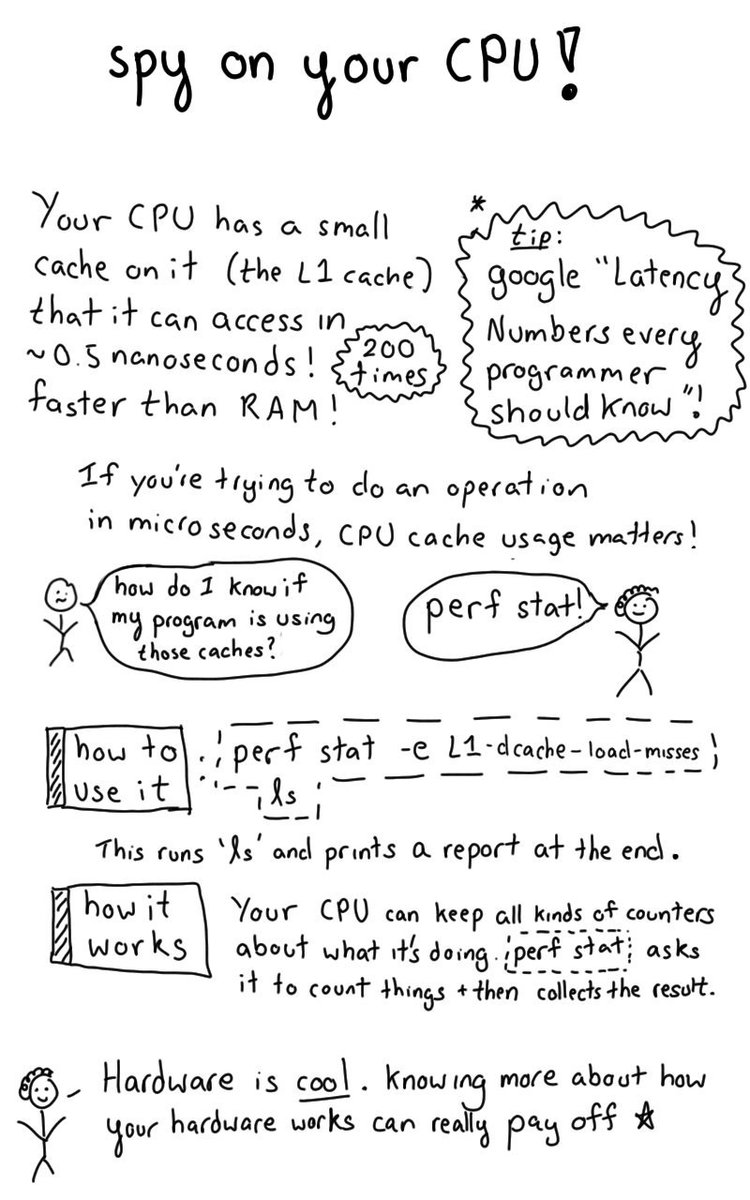 spy on your CPU!
Your CPU has a small
cache on it (the L1 cache)
that it can access in
~0.5 nanoseconds! 200 times
faster than RAM!
*
tip:
google "Latency
Numbers every
programmer
should know"!
If you're trying to do an operation
in microseconds, CPU cache usage matters!
how do I know if
my program is using
those caches?
perf stat!
how to
use it
perf stat -e L1-dcache-load-misses
ls
This runs 'ls' and prints a report at the end.
how it
works
Your CPU can keep all kinds of counters
about what it's doing. perf stat asks
it to count things + then collects the result.
Hardware is cool. Knowing more about how
your hardware works can really pay off ☆